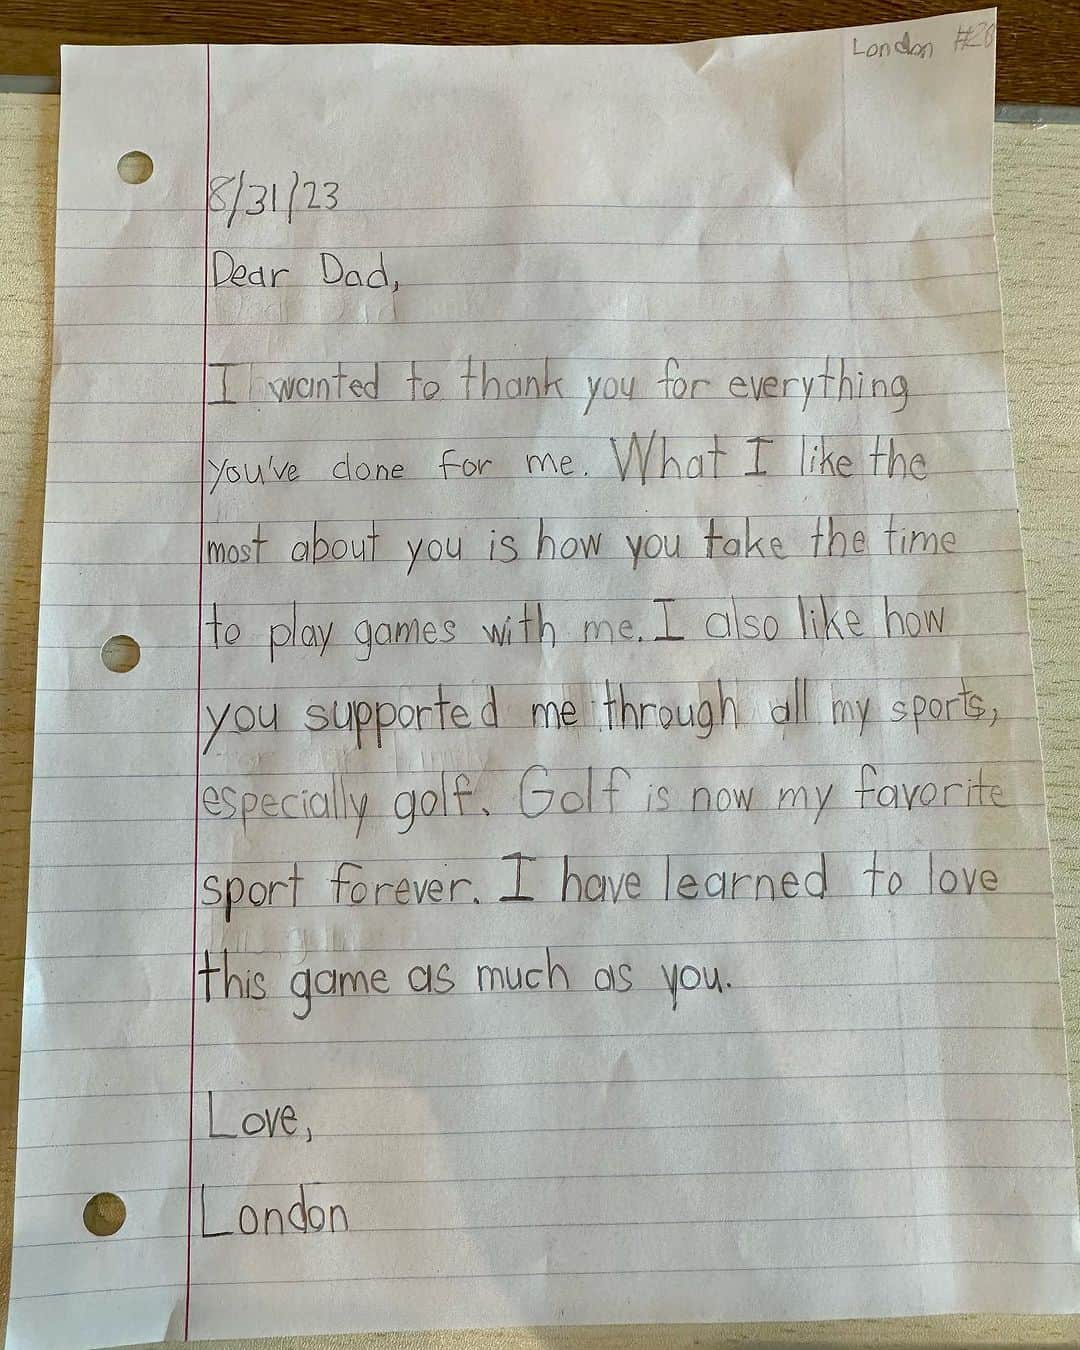 London #28
8/31/23
Dear Dad,
I wanted to thank you for everything
you've done for me. What I like the
most about you is how you take the time
to play games with me. I also like how
you supported me through all my sports,
especially golf. Golf is now my favorite
sport forever. I have learned to love
this game as much as you.
Love,
London